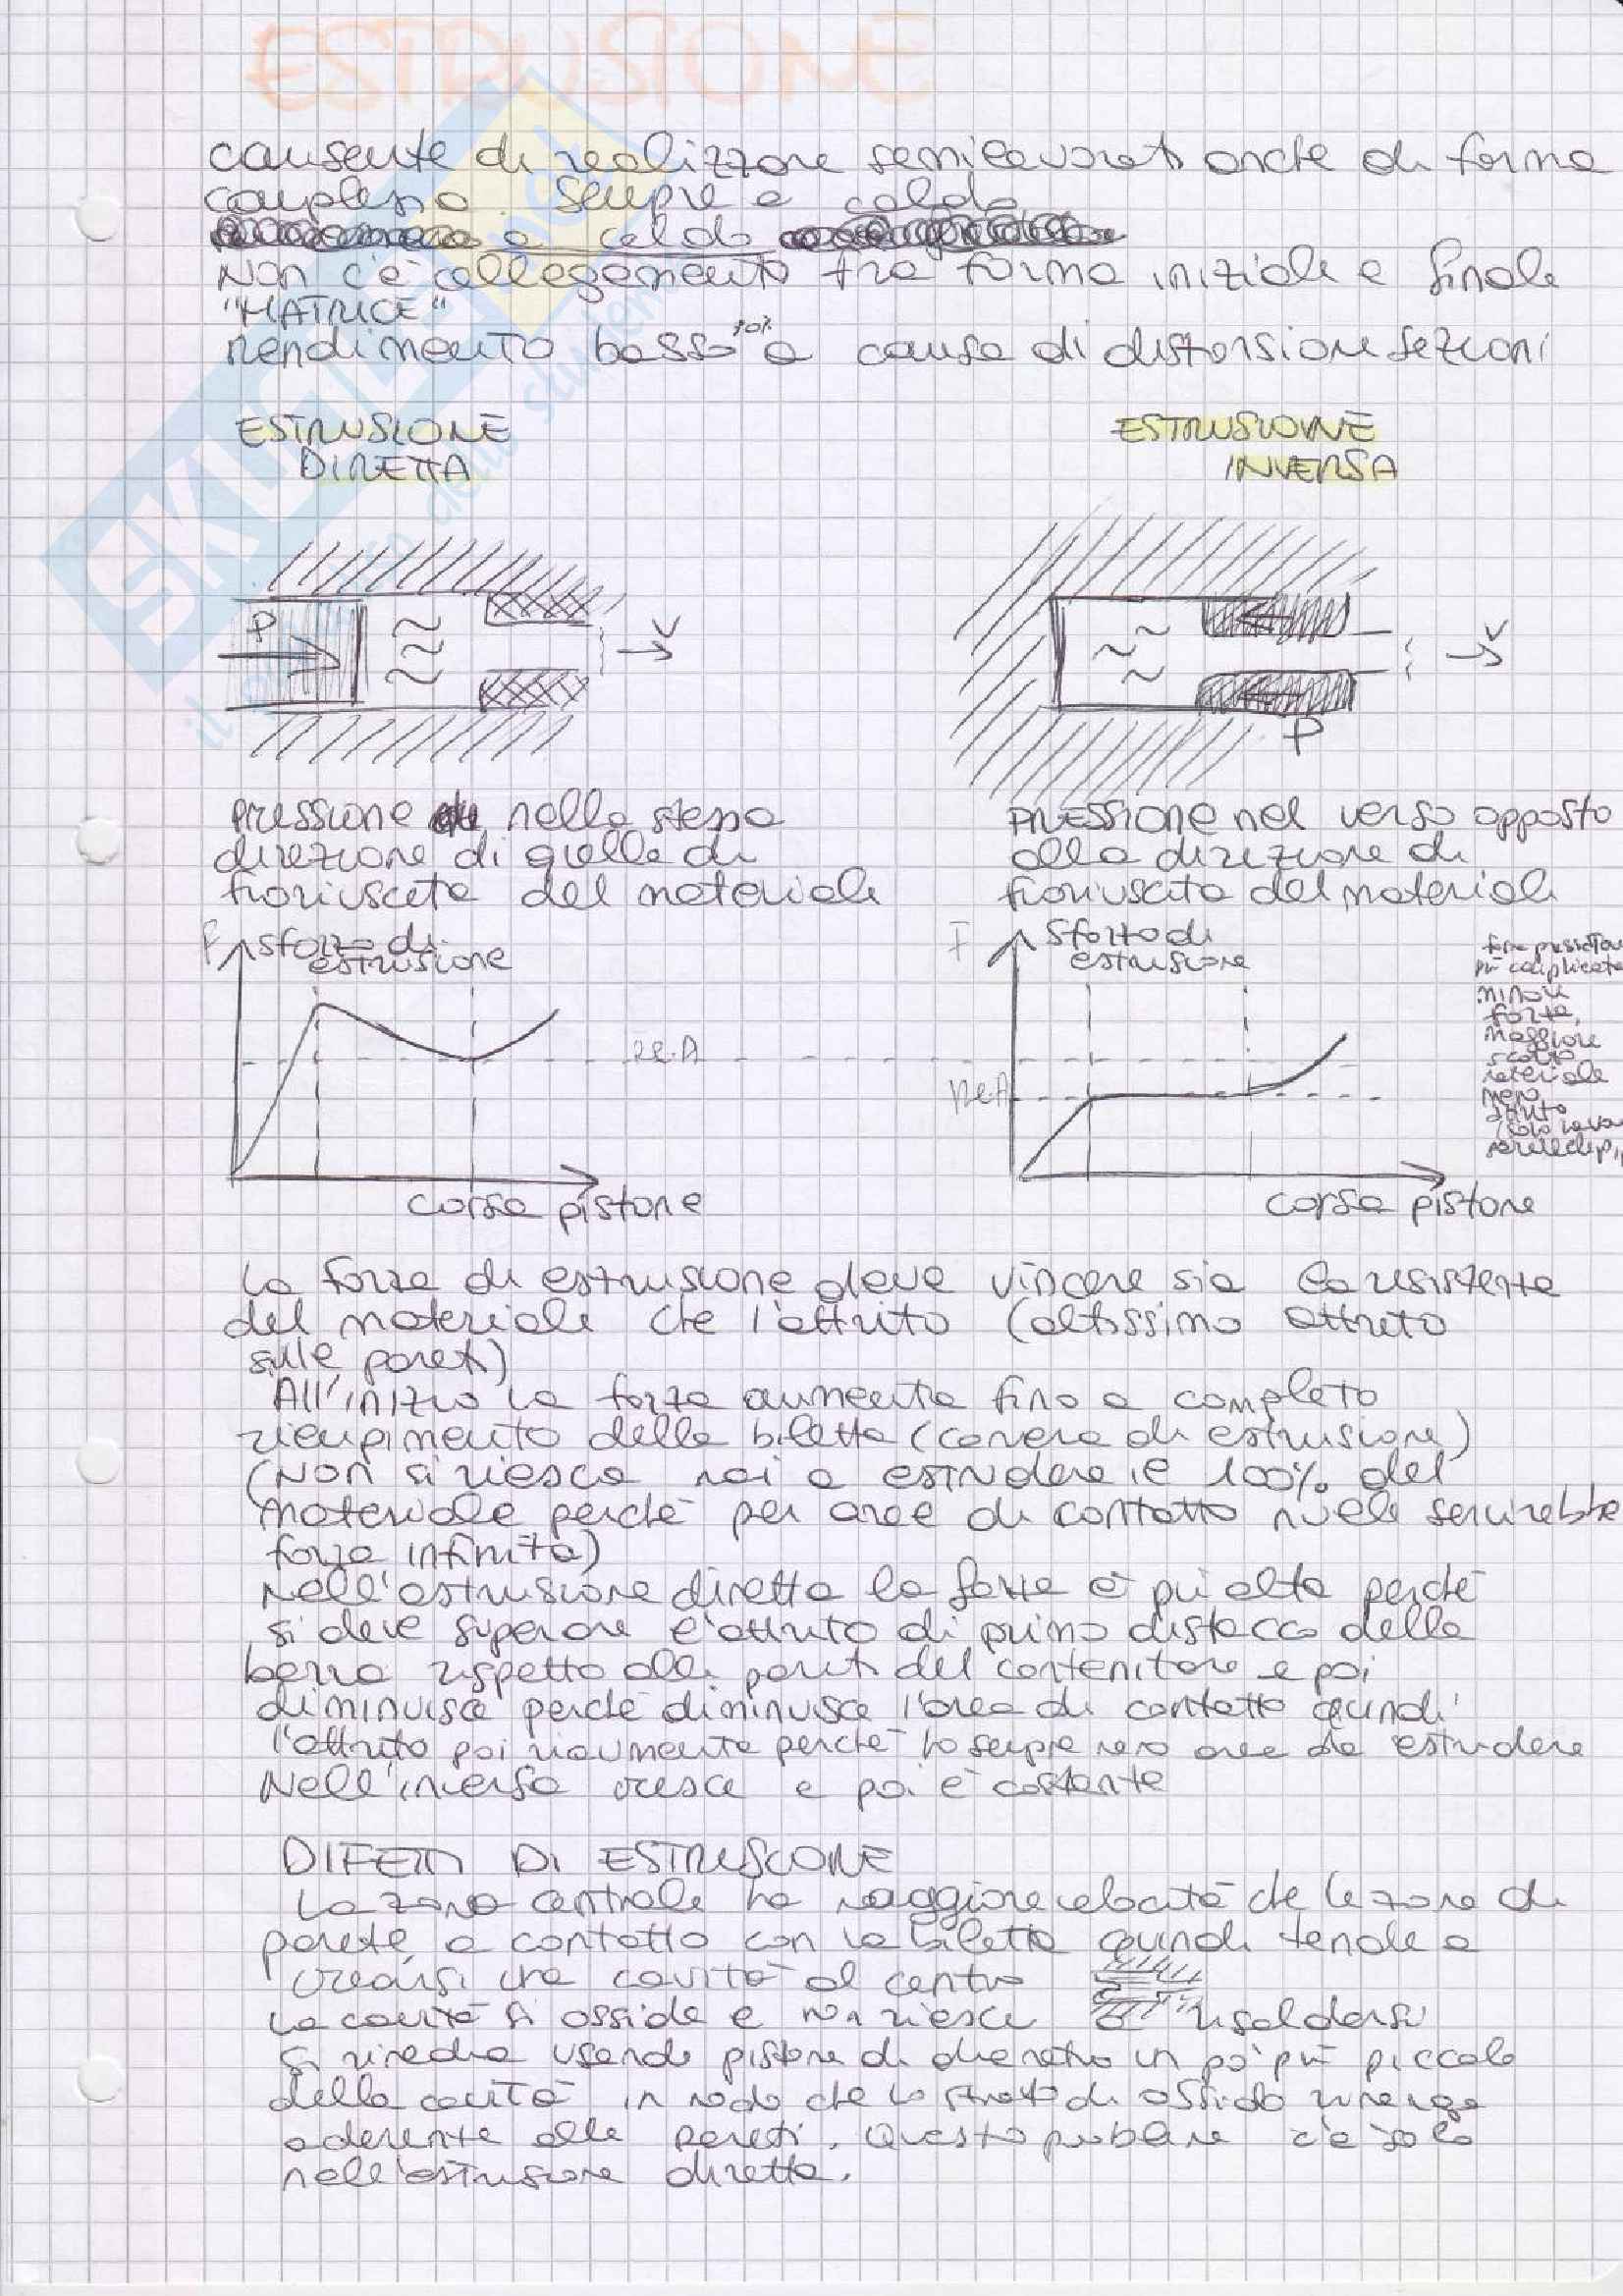 ESTRUSIONE
consente di realizzare semilavorati anche di forma
complessa. Sempre a caldo
a caldo
Non c'è collegamento tra forma iniziale e finale
"MATRICE"
rendimento basso a causa di distorsione sezioni
ESTRUSIONE
DIRETTA
ESTRUSIONE
INVERSA
P
V
V
P
pressione nella stessa
direzione di quella di
fioriuscita del materiale
PRESSIONE nel verso opposto
alla direzione di
fioriuscita del materiale
F
sforzo di
estrusione
Re·A
corsa pistone
F
Sforzo di
estrusione
Re·A
corsa pistone
più complicata
minore
forza,
maggiore
scarto
materiale
meno
attrito
(solo
La forza di estrusione deve vincere sia la resistenza
del materiale che l'attrito (altissimo attrito
sulle pareti)
All'inizio la forza aumenta fino a completo
riempimento della biletta (camera di estrusione)
(Non si riesce mai a estrudere il 100% del
materiale perchè per aree di contatto nulle servirebbe
forza infinita)
Nell'estrusione diretta la forza è più alta perchè
si deve superare l'attrito di primo distacco della
barra rispetto alle pareti del contenitore e poi
diminuisce perchè diminuisce l'area di contatto quindi
l'attrito poi riaumenta perchè ho sempre meno area da estrudere
Nell'inversa cresce e poi è costante
DIFETTI DI ESTRUSIONE
La zona centrale ha maggiore velocità che le zone di
parete a contatto con la biletta quindi tende a
crearsi una cavità al centro
La cavità si ossida e non riesce a risaldarsi
Si rimedia usando pistone di diametro un po' più piccolo
della cavità in modo che lo strato di ossido rimanga
aderente alle pareti. Questo problema c'è solo
nell'estrusione diretta.
SKUOLA.net
il portale dello studente